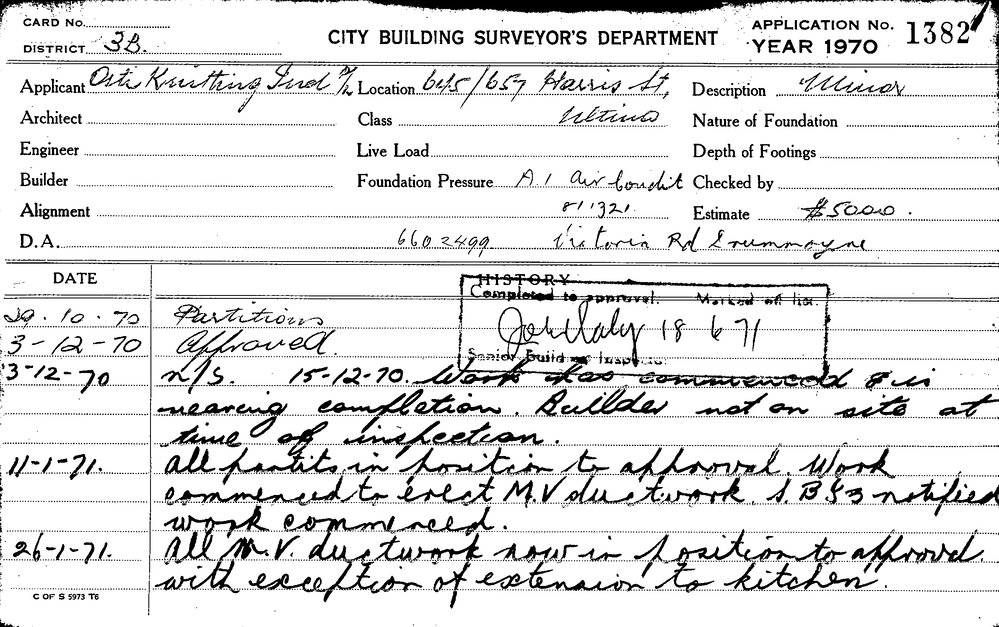 CARD No.
DISTRICT 3B.
CITY BUILDING SURVEYOR'S DEPARTMENT
APPLICATION No. 1382
YEAR 1970
Applicant Osti Knitting Ind P/L Location 645/657 Harris St, Description Minor
Architect Class Ultimo Nature of Foundation
Engineer Live Load Depth of Footings
Builder Foundation Pressure A.1 Air Condit Checked by
Alignment 811321 Estimate $5000.
D.A. 6602499 Victoria Rd Drummoyne
DATE HISTORY
Completed to approval. Marked off list.
29.10.70 Partitions
18 6 71
3-12-70 Approved.
Senior Building Inspector
3-12-70 n/S. 15-12-70. Work has commenced & is
nearing completion. Builder not on site at
time of inspection.
11-1-71. All partits in position to approval. Work
commenced to erect M.V ductwork. S B S 3 notified
work commenced.
26-1-71. All M.V. ductwork now in position to approval
with exception of extension to kitchen.
C OF S 5973 T6